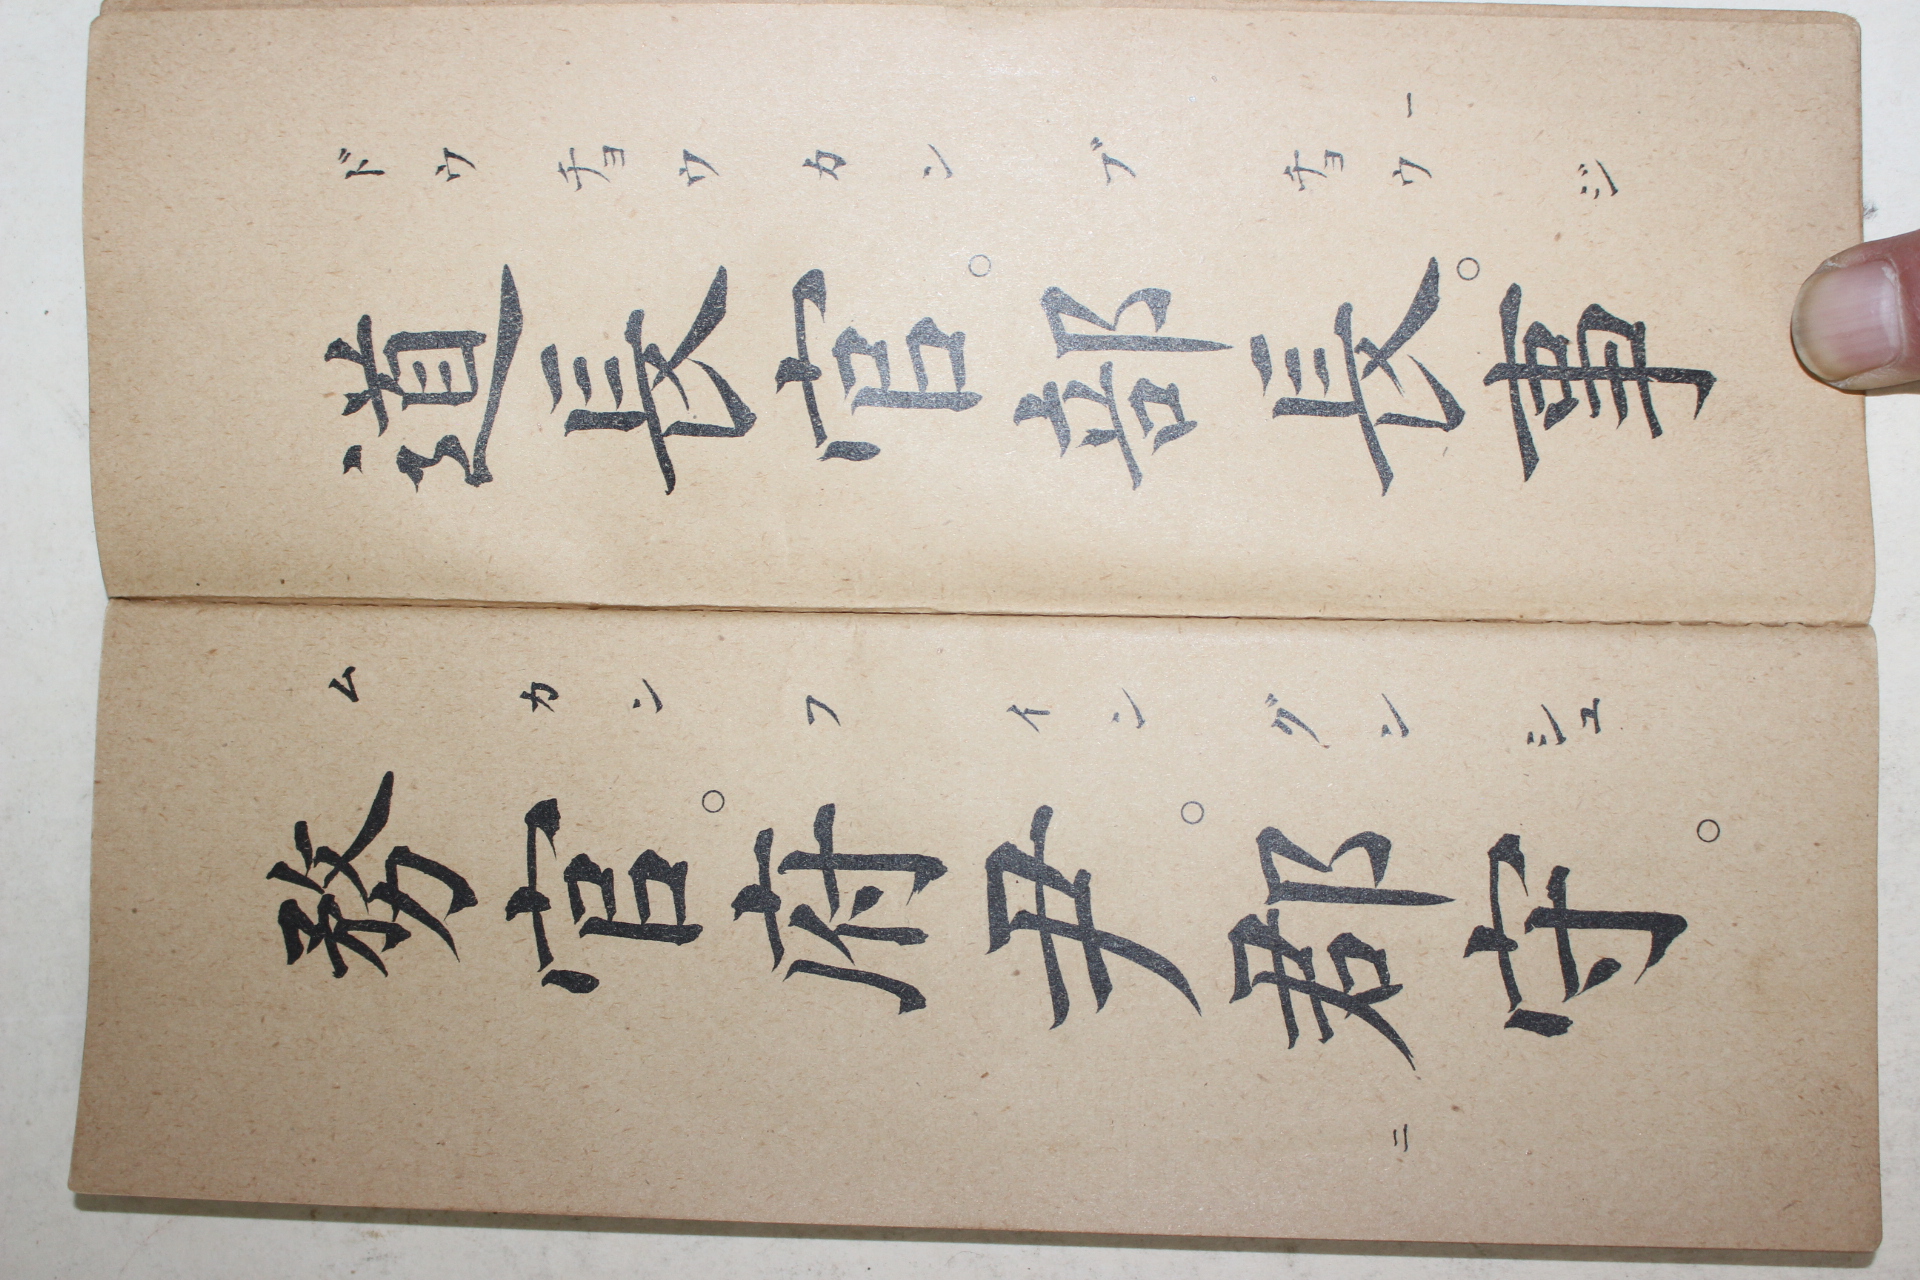 一
ドウチョウカン ブチョウ ジ
道長官。部長。事
ムカン フイン グンシュ
務官。府尹。郡守。
二